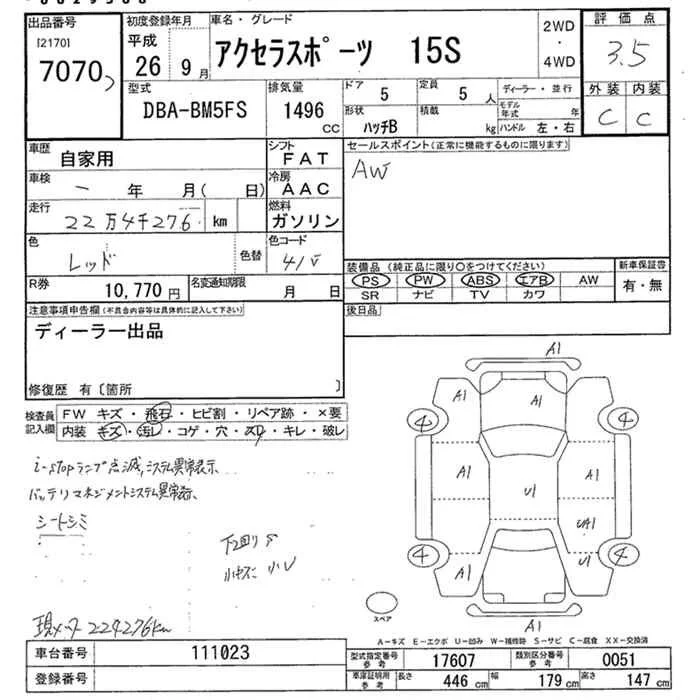 出品番号 初度登録年月 車名・グレード 2WD ・ 4WD 評価点
[2170] 7070 平成 26 9月 アクセラスポーツ 15S 3.5
型式 排気量 ドア 5 定員 5人 ディーラー・並行 外装 内装
DBA-BM5FS 1496 CC 形状 ハッチB 積載 kg モデル年式 年 ハンドル 左・右 C C
車歴 自家用 シフト FAT セールスポイント(正常に機能するものに限ります)
車検 ー 年 月( 日) 冷房 AAC AW
走行 22万4千276 km 燃料 ガソリン
色 レッド 色替 色コード 41V
装備品(純正品に限り○をつけてください) 新車保証書
PS PW ABS エアB AW 有・無
SR ナビ TV カワ
R券 10,770円 名変通知期限 月 日
後日品
注意事項申告欄(不具合内容等は具体的に記入して下さい)
ディーラー出品
修復歴 有〔箇所 〕
検査員記入欄 FW キズ・飛石・ヒビ割・リペア跡・×要
内装 キズ・汚レ・コゲ・穴・スリ・キレ・破レ
i-stopランプ点滅,システム異常表示、
バッテリマネジメントシステム異常表示、
シートシミ
下回りサ
小キズ 小U
現メータ 224276km
A1
A1 A1
4 4
A1 A1
U1
UA1
4 4
A1 A1
A1
スペア
A-キズ E-エクボ U-凹み W-補修跡 S-サビ C-腐食 XX-交換済
車台番号 111023 型式指定番号 参考 17607 類別区分番号 参考 0051
登録番号 車庫証明用 参考 長さ 446 cm 幅 179 cm 高さ 147 cm